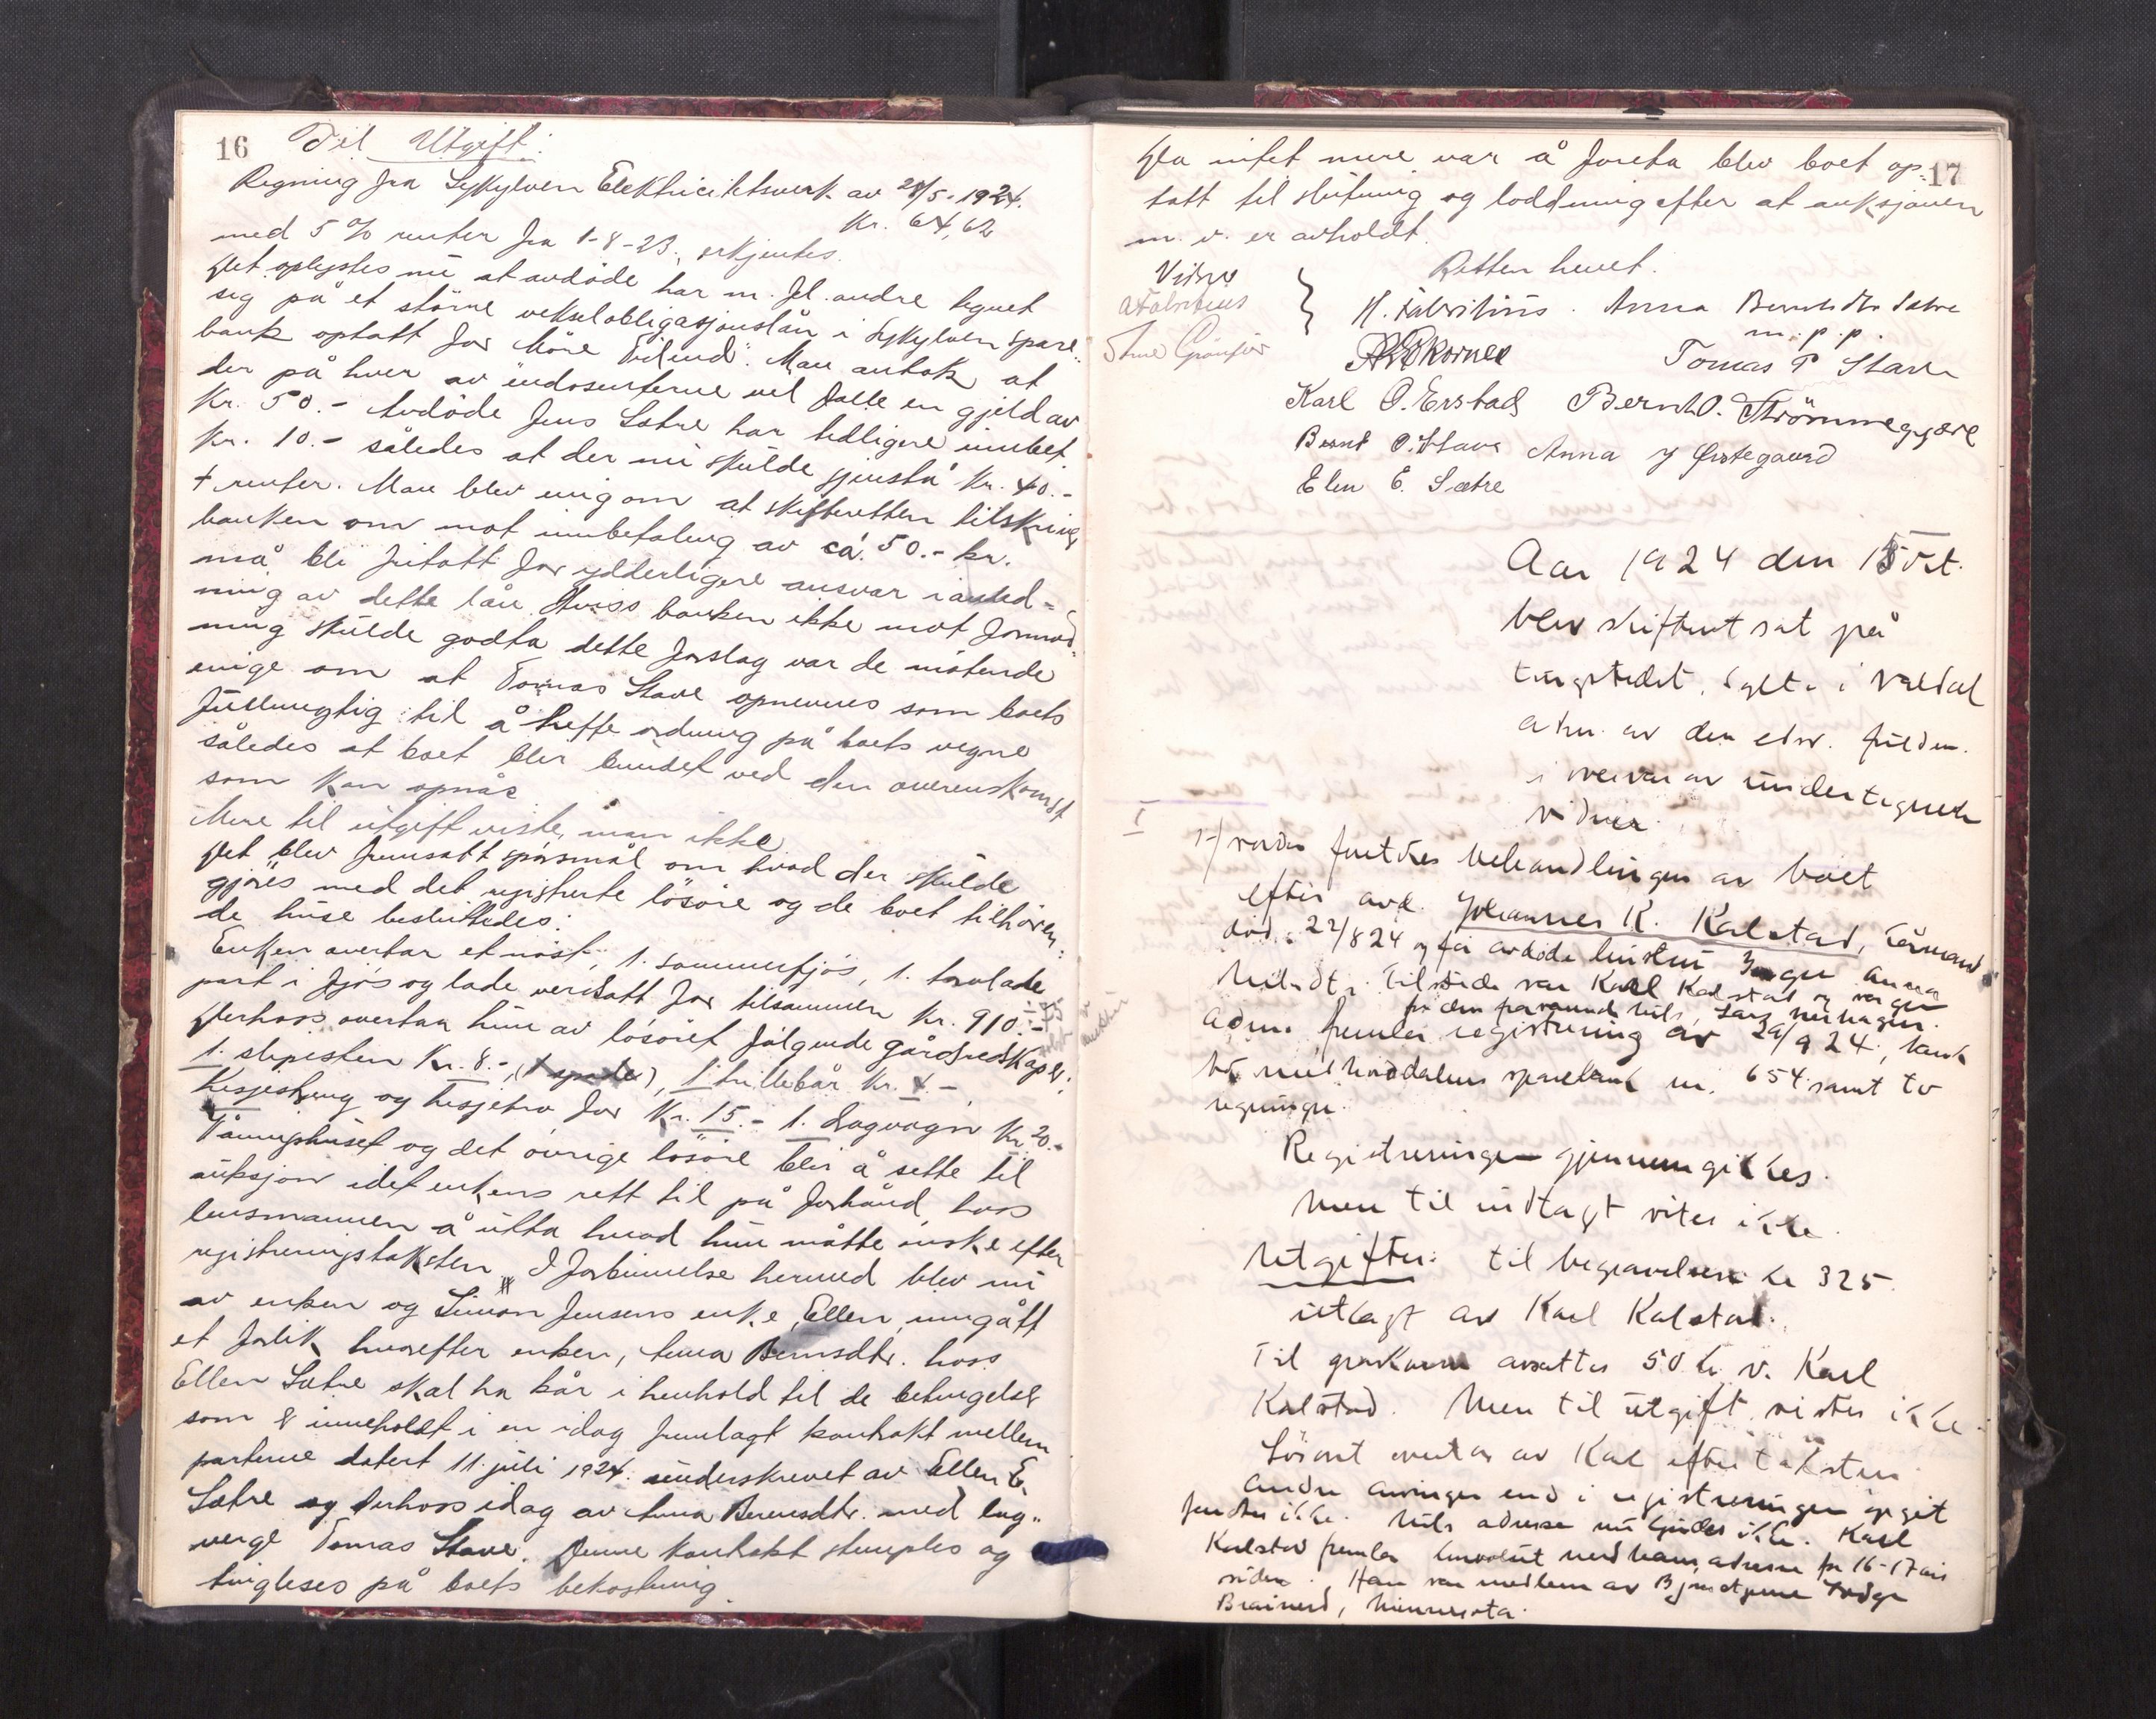 16 Til Utgift:
Regning fra Sykkylven Elektricitetsverk av 28/5-1924.
Kr. 64,62
med 5 % renter fra 1-8-23, erkjentes.
Det oplystes nu at avdøde har m. fl. andre tegnet
sig på et større vekselobligasjonslån i Sykkylven Spare-
bank optatt for Møre Tidend. Man antok at
der på hver av endosenterne vel falle en gjeld av
Kr. 50.- Avdøde Jens Sætre har tidligere innbet.
Kr. 10.- således at der nu skulde gjenstå Kr. 40.-
+ renter. Man blev enig om at skifteretten tilskriver
banken om mot innbetaling av ca. 50.- kr.
må bli fritatt for ydderligere ansvar i anled-
ning av dette lån. Hviss banken ikke mot formod-
ning skulde godta dette forslag var de møtende
enige om at Tomas Stave opnevnes som boets
fullmegtig til å treffe ordning på boets vegne
således at boet blir bundet ved den overenskomst
som kan opnåes
Mere til utgift viste man ikke
Det blev fremsatt spørsmål om hvad der skulde
gjøres med det registrerte løsøre og de boet tilhøren-
de huse besluttedes:
Enken overtar et nøst, 1. sommerfjøs, 1. torvlade
part i fjøs og lade verdsatt for tilsammen Kr. 910.-
Derhoss overtar hun av løsøret følgende gårdsredskaper:
1. slipesten Kr. 8.-, (1 spade), 1 trillebår Kr. 4.-
hesjestreng og hesjetro for Kr. 15.- 1. Dragvogn Kr. 20.-
Våningshuset og det øvrige løsøre blir å sette til
auksjon idet enkens rett til på forhånd hos
lensmannen å utta hvad hun måtte ønske efter
registreringstaksten. I forbinnelse hermed blev nu
av enken og Simon Jensens enke, Ellen, inngått
et forlik hvorefter enken, Anna Berntsdtr. hoss
Ellen Sætre skal ha kår i henhold til de betingelser
som er inneholdt i en idag fremlagt kontrakt mellem
parterne datert 11. juli 1924 underskrevet av Ellen E.
Sætre og derhoss idag av Anna Berntsdtr. med lag-
verge Tomas Stave. Denne kontrakt stemples og
tingleses på boets bekostning.
17
Da intet mere var å foreta blev boet op-
tatt til slutning og loddning efter at auksjonen
m. v. er avholdt.
Retten hevet.
Vidner
A Fabritius
H. Fabritius. Anna Berntsdtr Sætre
m. p. p.
Tomas P Stave
Karl O. Erstad Bernt O. Strømmegjære
Bernt O. Stave Anna J Ørstegaard
Elen E. Sætre
Aar 1924 den 15 Okt.
blev skifteret sat på
tingstedet, Sylte i Valdal
adm. av den edsv. fuldm.
i overvær av undertegnede
vidner.
I
1) foretokes behandlingen av boet
efter avd. Johannes K. Kalstad,
død 22/8 24 og før avdøde hustru Inger Anna
Nilsdtr. Tilstede var Karl Kalstad og vergen
for den fraværende Nils, Lars
Adm. fremla registrering av 29/9 24, bank
bok med Norddalens sparebank nr. 654 samt to
regninger.
Registreringen gjennemgikkes.
Mere til indtægt vites ikke
Utgifter: til begravelsen kr 325.
utlagt av Karl Kalstad.
Til gravkarm avsattes 50 kr v. Karl
Kalstad. Mere til utgift vistes ikke
Løsøret overtas av Karl efter taksten
Andre arvinger end i registreringen opgit
fandtes ikke. Nils adresse nu kjendes ikke. Karl
Kalstad fremla konvolut med hans adresse for 16-17 år
siden. Han var medlem av Bjørnstjerne Lodge
Brainerd, Minnesota.